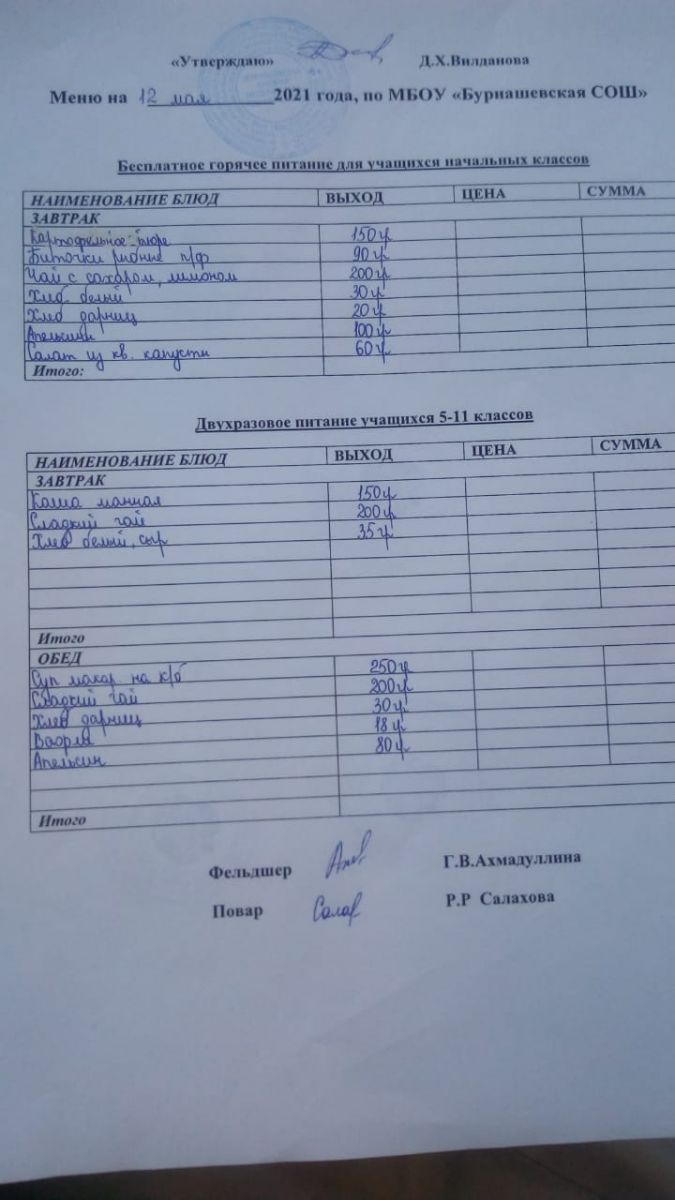 «Утверждаю» Д.Х.Вилданова
Меню на 12 мая 2021 года, по МБОУ «Бурнашевская СОШ»
Бесплатное горячее питание для учащихся начальных классов
НАИМЕНОВАНИЕ БЛЮД ВЫХОД ЦЕНА СУММА
ЗАВТРАК
Картофельное пюре 150 гр
Биточки рыбные п/ф 90 гр
Чай с сахаром, лимоном 200 гр
Хлеб белый 30 гр
Хлеб дарниц 20 гр
Апельсин 100 гр
Салат из кв. капусты 60 гр
Итого:
Двухразовое питание учащихся 5-11 классов
НАИМЕНОВАНИЕ БЛЮД ВЫХОД ЦЕНА СУММА
ЗАВТРАК
Каша манная 150 гр
Сладкий чай 200 гр
Хлеб белый, сыр 35 гр
Итого
ОБЕД
Суп макар. на к/б 250 гр
Сладкий чай 200 гр
Хлеб дарниц 30 гр
Вафля 18 гр
Апельсин 80 гр
Итого
Фельдшер Г.В.Ахмадуллина
Повар Салах Р.Р Салахова